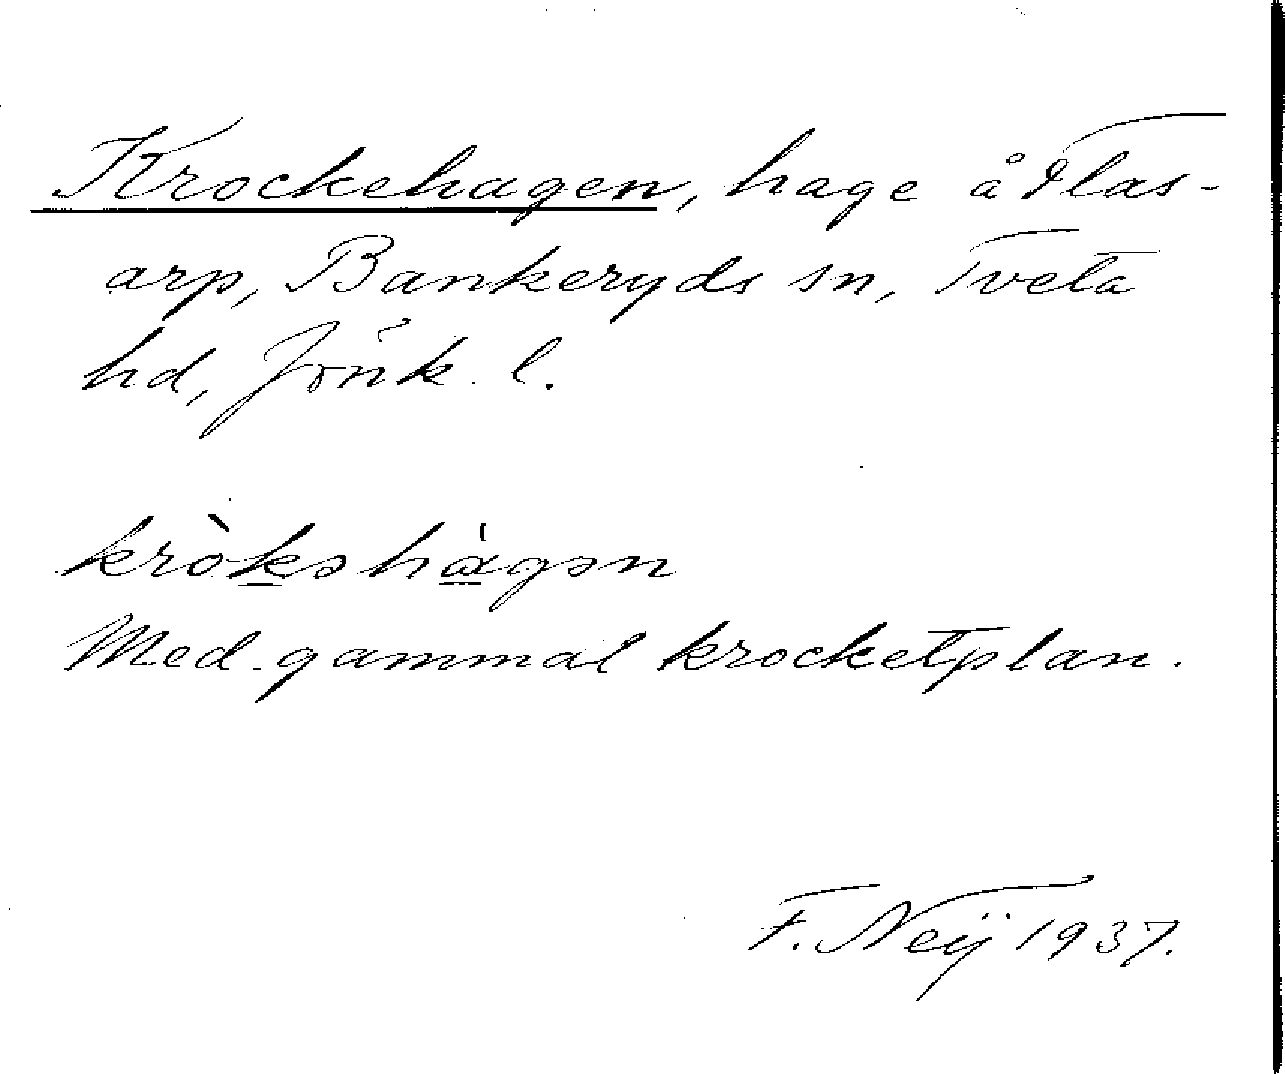 Krockehagen, hage å Flas-
arp, Bankeryds sn, Tveta
hd, Jönk. l.
kròkəhàgən
Med gammal krocketplan.
F. Neij 1937.